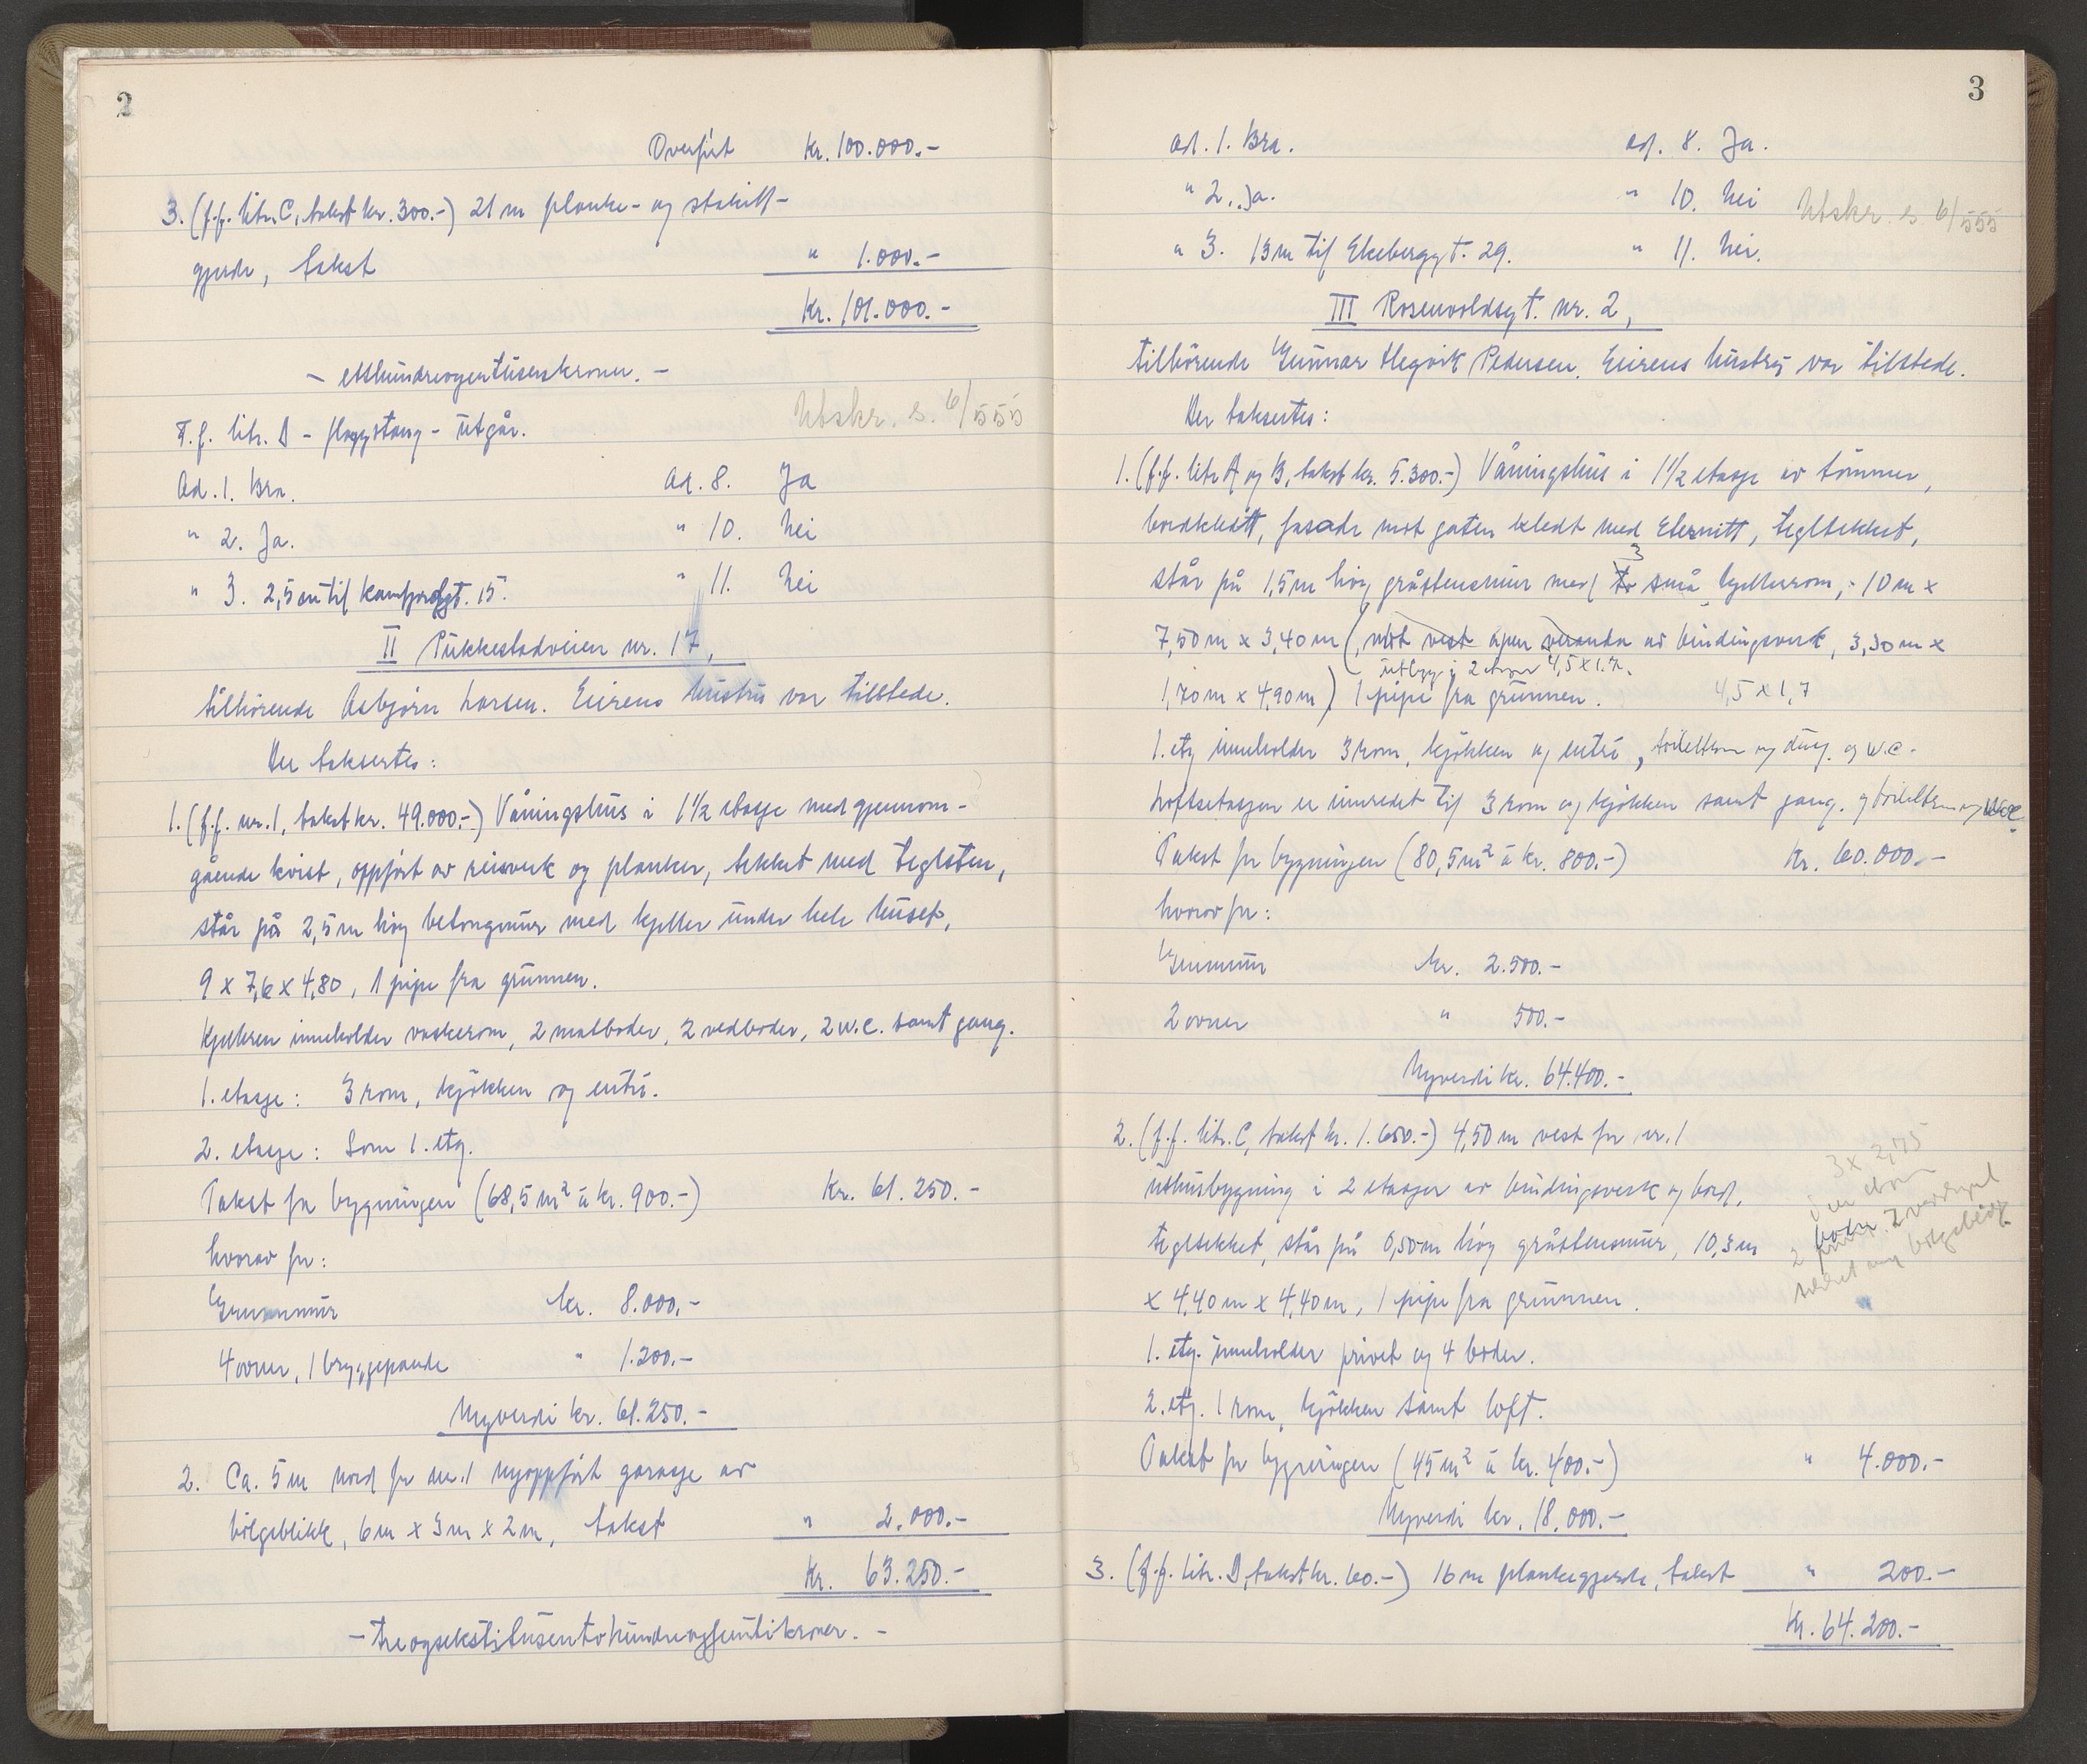 2
Overført Kr. 100.000.-
3. (f.f. litr. C, takst kr. 300.-) 21 m planke- og stakitt-
gjerde, takst " 1.000.-
Kr. 101.000.-
- etthundreogentusenkroner. -
F.f. litr. D - flaggstang - utgår.
Utskr. s. 6/555
Ad. 1. Bra. Ad. 8. Ja
" 2. Ja. " 10. Nei
" 3. 2,5 m til 15. " 11. Nei
II Pukkestadveien nr. 17,
tilhörende Asbjørn Larsen. Eierens hustru var tilstede.
Der taksertes:
1. (f.f. nr. 1, takst kr. 49.000.-) Våningshus i 1 1/2 etasje med gjennom-
gående kvist, oppført av reisverk og planker, tekket med teglsten,
står på 2,5 m høy betongmur med kjeller under hele huset,
9 x 7,6 x 4,80, 1 pipe fra grunnen.
Kjelleren inneholder vaskerom, 2 matboder, 2 vedboder, 2 w.c. samt gang.
1. etasje: 3 rom, kjøkken og entré.
2. etasje: Som 1. etg.
Takst for bygningen (68,5 m² á kr. 900.-) Kr. 61.250.-
hvorav for:
Grunnmur kr. 8.000.-
4 ovner, 1 bryggepanne " 1.200.-
Nyverdi kr. 61.250.-
2. Ca. 5 m nord for nr. 1 nyoppført garasje av
bølgeblikk, 6 m x 3 m x 2 m, takst " 2.000.-
Kr. 63.250.-
- treogsekstitusentohundreogfemtikroner. -
3
Ad. 1. Bra. Ad. 8. Ja.
" 2. Ja. " 10. Nei
Utskr. s. 6/555
" 3. 13 m til Ekeberggt. 29. " 11. Nei.
III Rosenvoldsgt. nr. 2,
tilhörende Gunnar Hegvik Pedersen. Eierens hustru var tilstede.
Der taksertes:
1. (f.f. litr A og B, takst kr. 5.300.-) Våningshus i 1 1/2 etasje av tømmer,
bordkledt, fasade mot gaten kledt med Eternitt, tegltekket,
3
står på 1,5 m høy gråstensmur med to små kjellerrom, 10 m x
7,50 m x 3,40 m (, mot vest åpen veranda av bindingsverk, 3,30 m x
utbygg i 2 etasjer 4,5 x 1,7.
1,70 m x 4,90 m) 1 pipe fra grunnen. 4,5 x 1,7
1. etg inneholder 3 rom, kjøkken og entré, toilettrom og dusj. og w.c.
Loftsetasjen er innredet til 3 rom og kjøkken samt gang. og toilettrom og w.c.
Takst for bygningen (80,5 m² á kr. 800.-) Kr. 60.000.-
hvorav for:
Grunnmur kr. 2.500.-
2 ovner " 500.-
Nyverdi kr. 64.400.-
2. (f.f. litr. C, takst kr. 1.650.-) 4,50 m vest for nr. 1
3 x 2,75
uthusbygning i 2 etasjer av bindingsverk og bord,
tegltekket, står på 0,50 m høy gråstensmur, 10,3 m
x 4,40 m x 4,40 m, 1 pipe fra grunnen.
1. etg. inneholder privet og 4 boder.
2. etg. 1 rom, kjøkken samt loft.
Takst for bygningen (45 m² á kr. 400.-) " 4.000.-
Nyverdi kr. 18.000.-
3. (f.f. litr. D, takst kr. 60.-) 16 m plankegjerde, takst " 200.-
Kr. 64.200.-